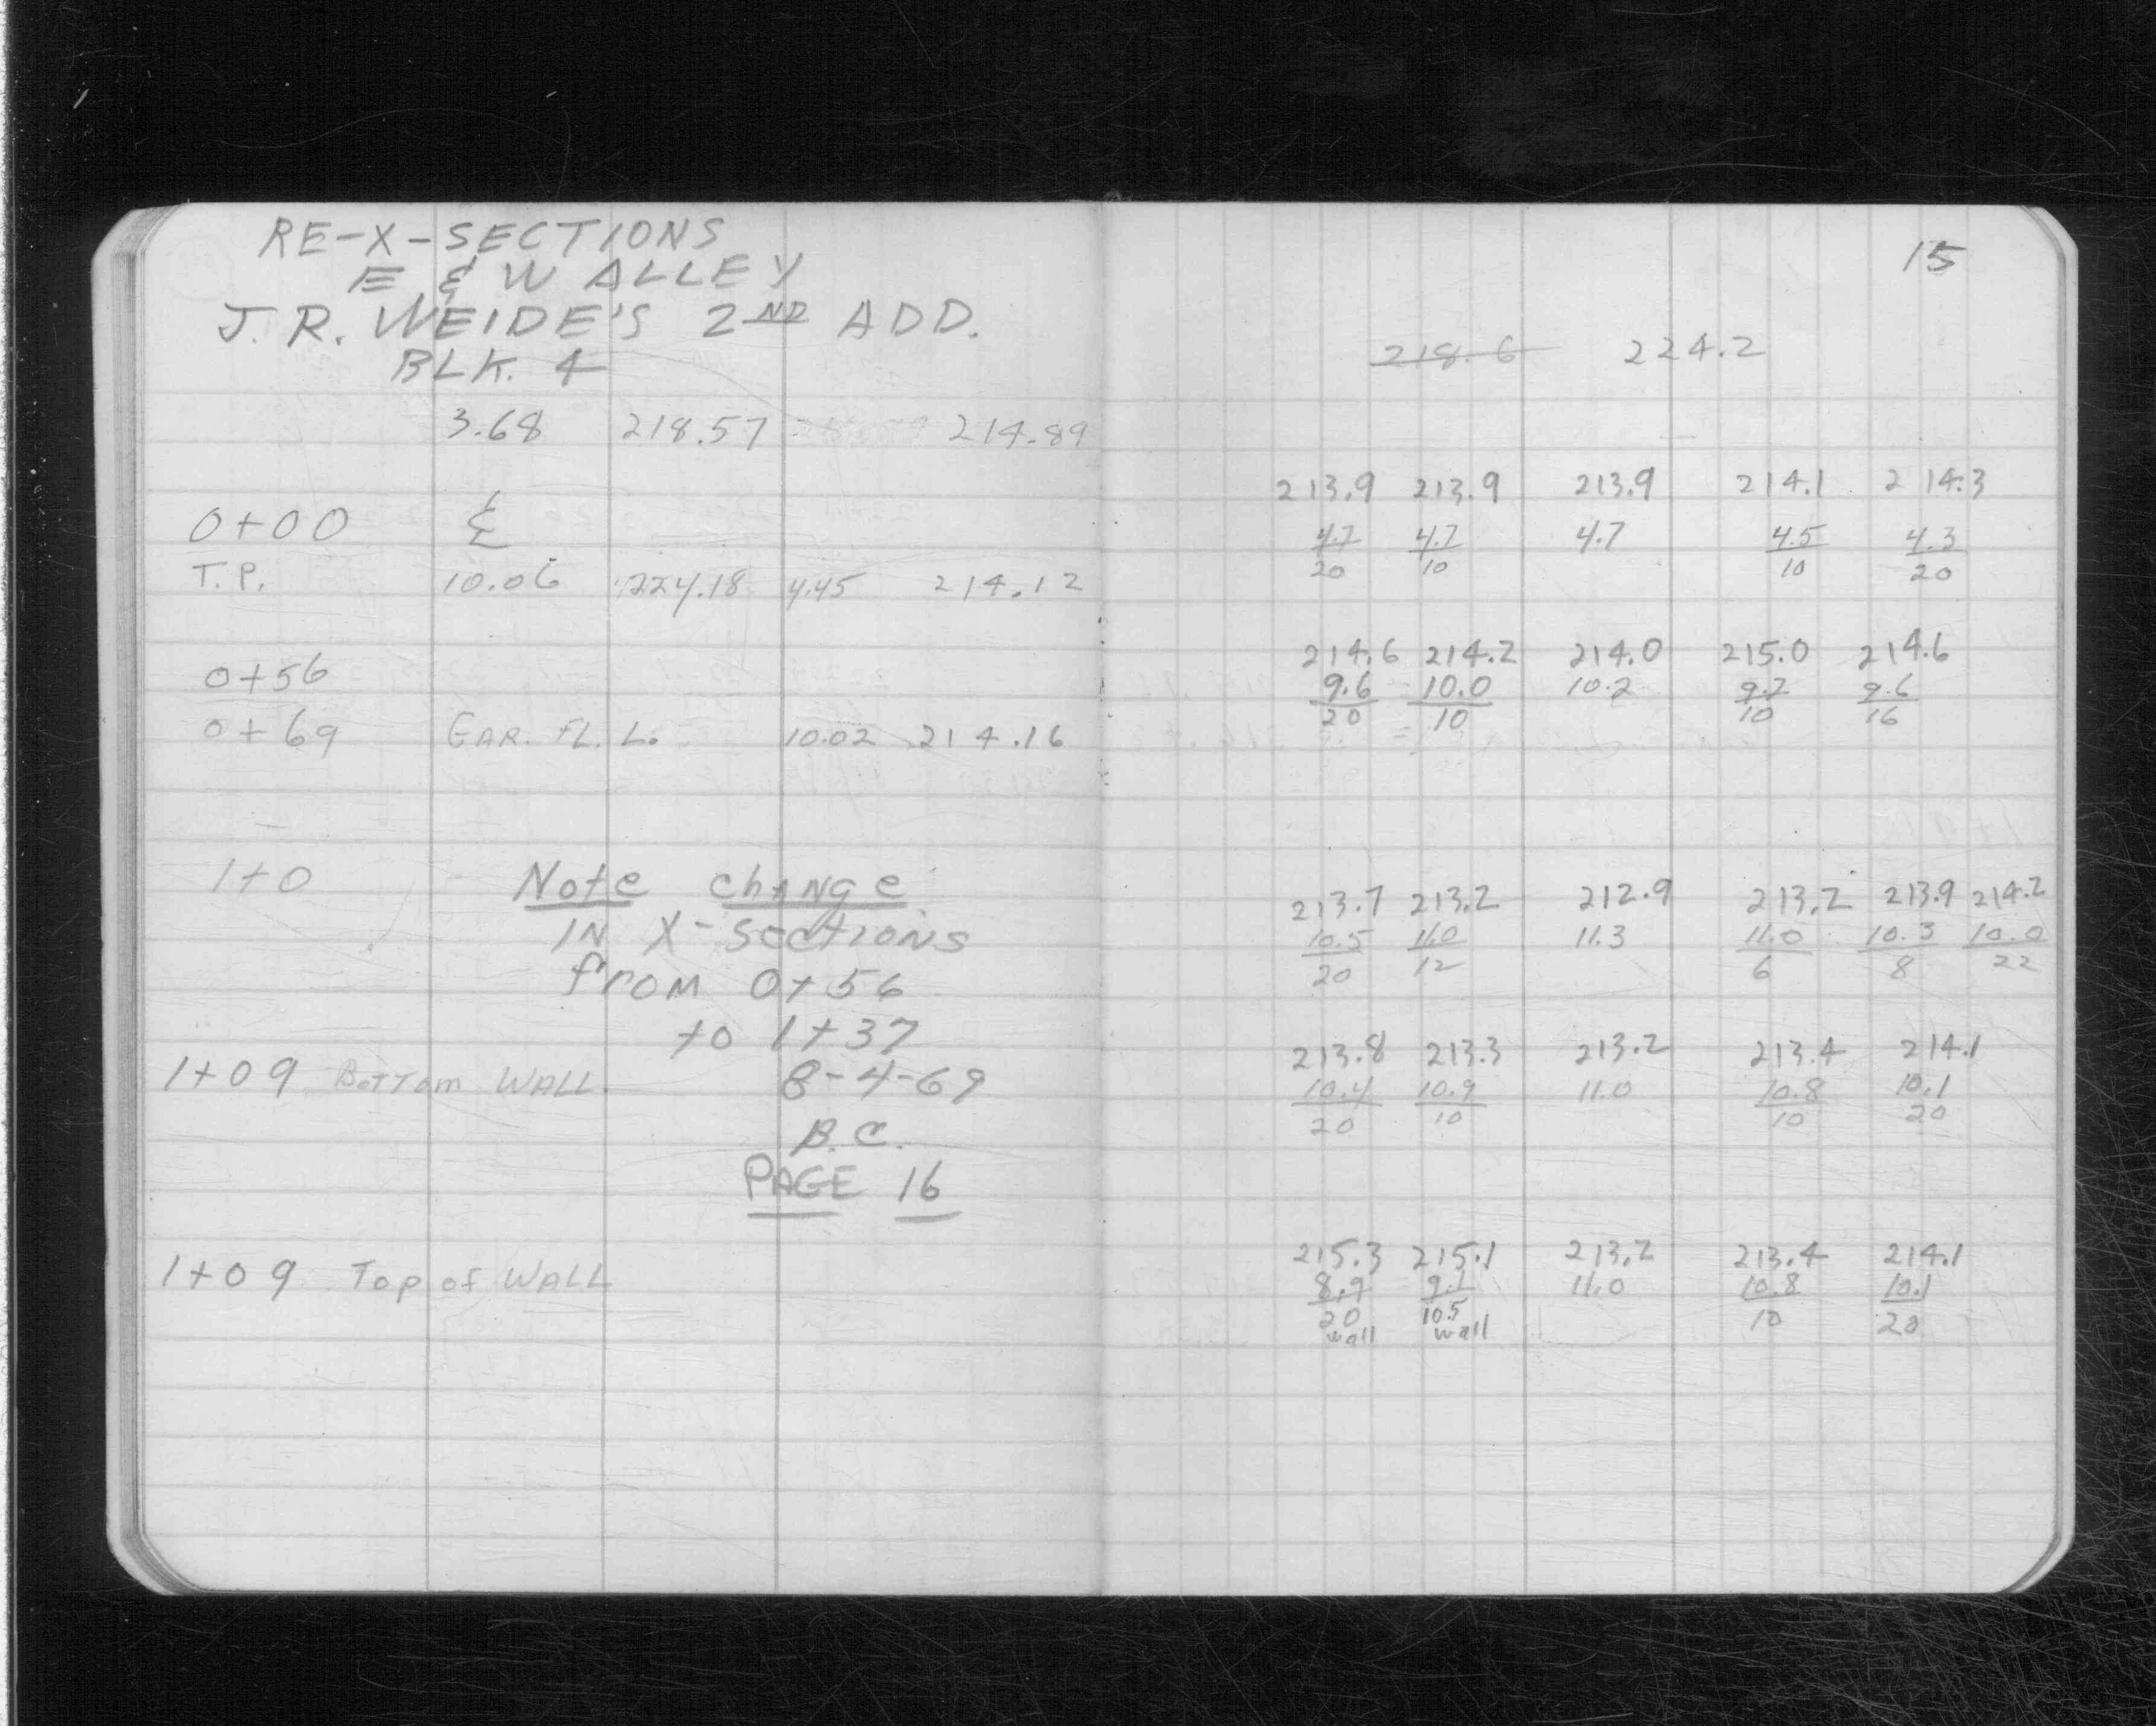 RE-X-SECTIONS
E & W ALLEY
J. R. WEIDE'S 2ND ADD.
BLK. 4
3.68 218.57 214.89
0+00 ℄
T.P. 10.06 224.18 4.45 214.12
0+56
0+69 GAR. FL. L. 10.02 214.16
1+0 Note change
IN X-Sections
from 0+56
to 1+37
1+09 Bottom WALL. 8-4-69
B.C.
PAGE 16
1+09 Top of WALL
15
218.6 224.2
213.9 213.9 213.9 214.1 214.3
4.7 4.7 4.7 4.5 4.3
20 10 10 20
214.6 214.2 214.0 215.0 214.6
9.6 10.0 10.2 9.2 9.6
20 10 10 16
213.7 213.2 212.9 213.2 213.9 214.2
10.5 11.0 11.3 11.0 10.3 10.0
20 12 6 8 22
213.8 213.3 213.2 213.4 214.1
10.4 10.9 11.0 10.8 10.1
20 10 10 20
215.3 215.1 213.2 213.4 214.1
8.9 9.1 11.0 10.8 10.1
20 10.5 10 20
wall wall